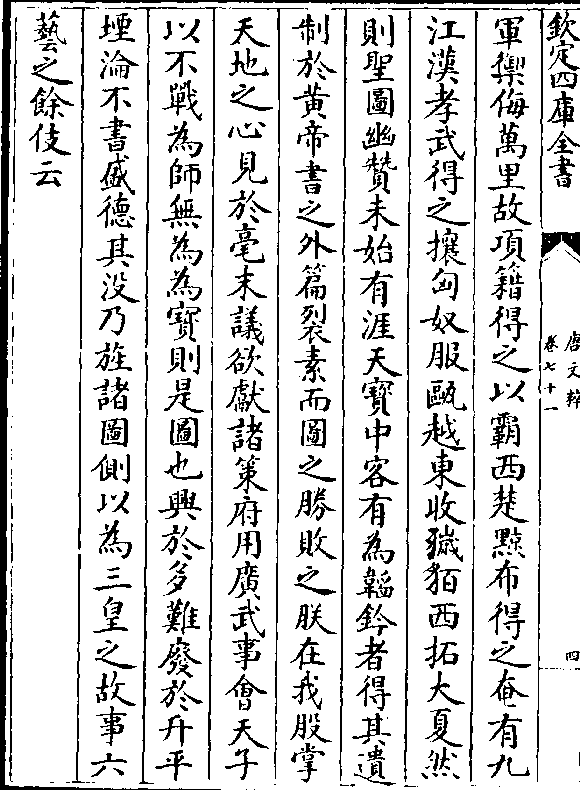 欽定四庫全書
唐文粹
卷七十一
四
軍禦侮萬里故項籍得之以霸西楚黥布得之奄有九
江漢孝武得之攘匈奴服甌越東收獩貊西拓大夏然
則聖圖幽贊未始有涯天寶中客有為韜鈐者得其遺
制於黄帝書之外篇裂素而圖之勝敗之朕在我股掌
天地之心見於毫末議欲獻諸策府用廣武事會天子
以不戰為師無為為寳則是圖也興於多難廢於升平
堙淪不書盛德其没乃旌諸圖側以為三皇之故事六
藝之餘伎云